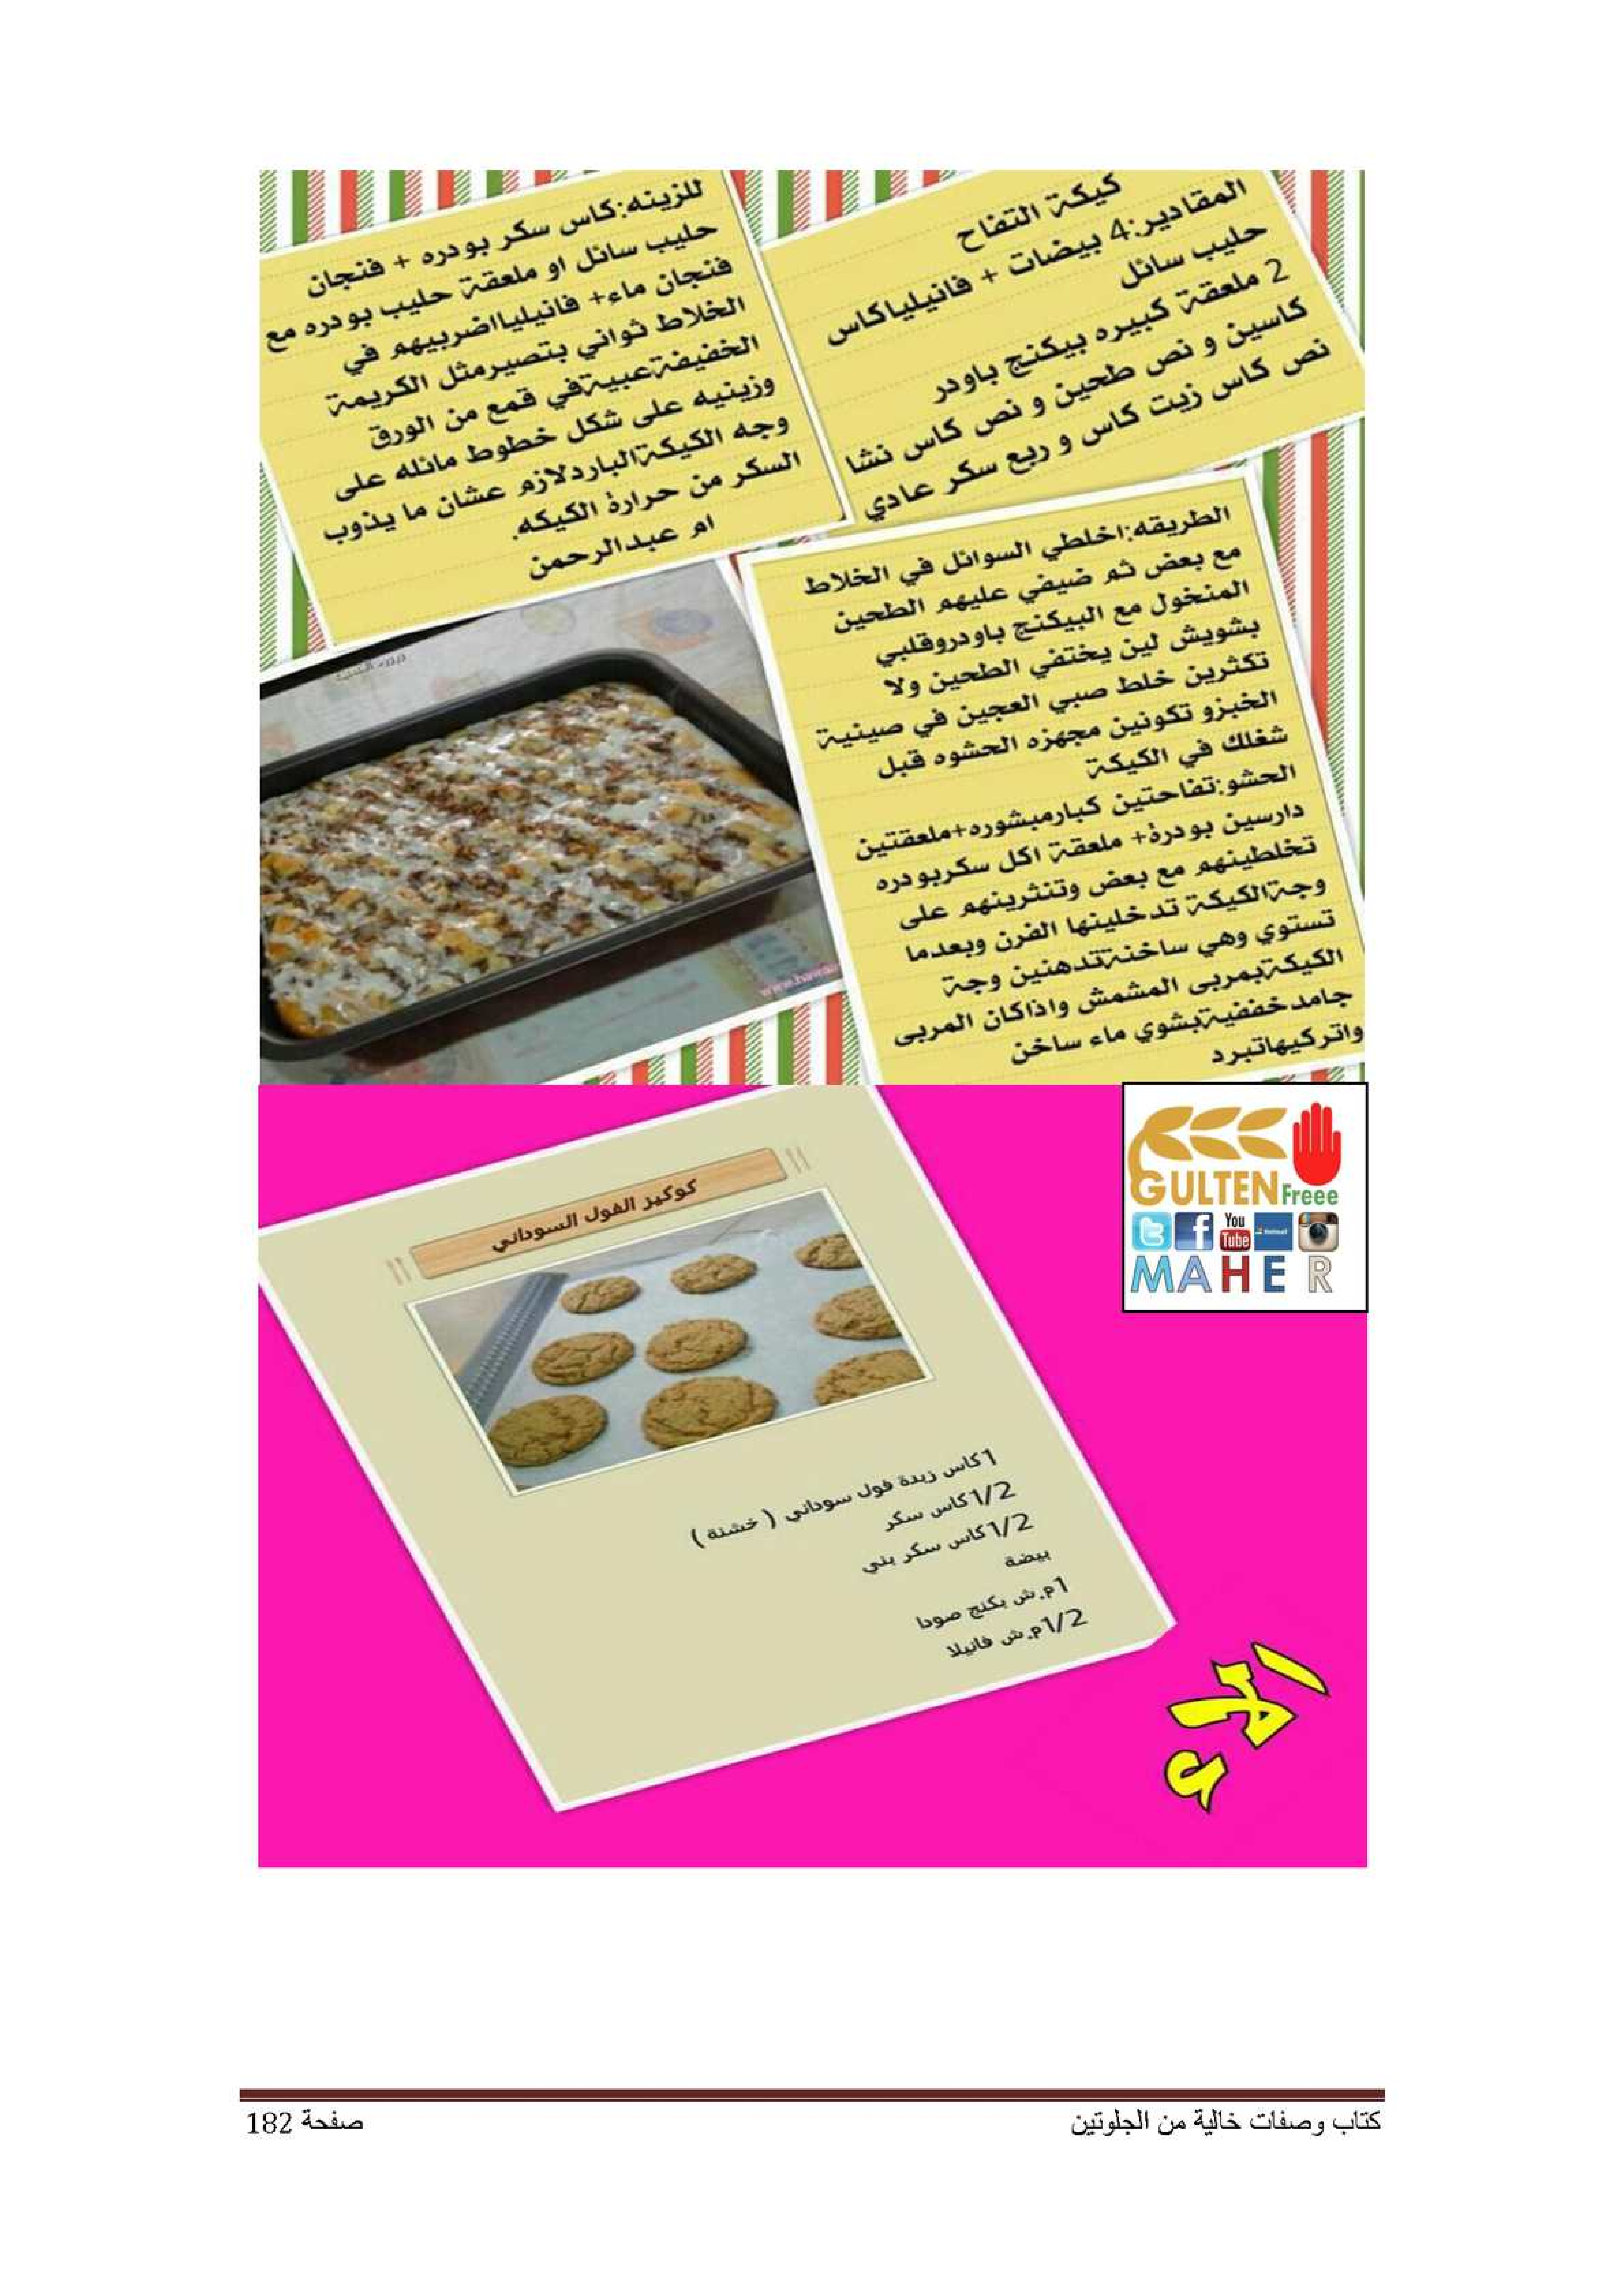 كيكة التفاح
المقادير:4 بيضات + فانيليا كاس
حليب سائل
2 ملعقة كبيره بيكنج باودر
كاسين و نص طحين و نص كاس نشا
نص كاس زيت كاس و ربع سكر عادي
الطريقه:اخلطي السوائل في الخلاط
مع بعض ثم ضيفي عليهم الطحين
المنخول مع البيكنج باودروقلبي
بشويش لين يختفي الطحين ولا
تكثرين خلط صبي العجين في صينية
الخبزو تكونين مجهزه الحشوه قبل
شغلك في الكيكة
الحشو:تفاحتين كبارمبشوره+ملعقتين
دارسين بودرة+ ملعقة اكل سكربودره
تخلطينهم مع بعض وتنثرينهم على
وجةالكيكة تدخلينها الفرن وبعدما
تستوي وهي ساخنةتدهنين وجة
الكيكةبمربى المشمش واذاكان المربى
جامدخففيةبشوي ماء ساخن
واتركيهاتبرد
للزينه:كاس سكر بودره + فنجان
حليب سائل او ملعقة حليب بودره مع
فنجان ماء+ فانيليااضربيهم في
الخلاط ثواني بتصيرمثل الكريمة
الخفيفةعبيةفي قمع من الورق
وزينيه على شكل خطوط مائله على
وجه الكيكةالباردلازم عشان ما يذوب
السكر من حرارة الكيكه.
ام عبدالرحمن
GULTEN Freee
You
Tube
MAHER
كوكيز الفول السوداني
1كاس زبدة فول سوداني ( خشنة )
1/2كاس سكر
1/2كاس سكر بني
بيضة
1م.ش بكنج صودا
1/2م.ش فانيلا
كتاب وصفات خالية من الجلوتين
صفحة 182